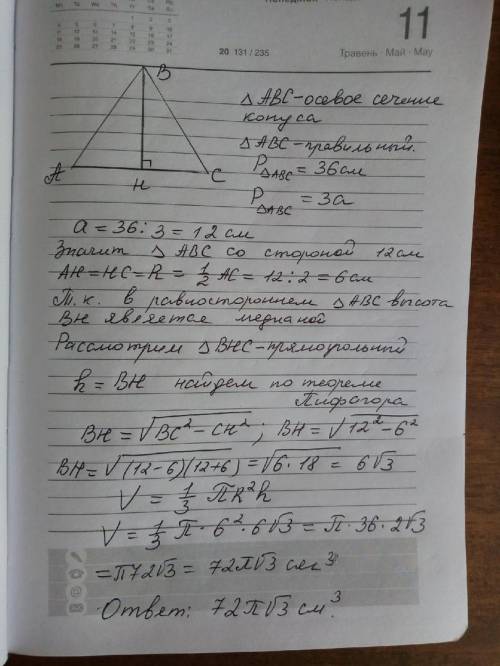 11
20 131 / 235
Травень · Май · May
B
A
H
C
△ ABC-осевое сечение
конуса
△ ABC-правильный.
P△ABC = 36см
P△ABC = 3a
a = 36 : 3 = 12 см
Значит △ ABC со стороной 12см
AH = HC = R = 1/2 AC = 12 : 2 = 6см
Т.к. в равностороннем △ ABC высота
BH является медианой
Рассмотрим △ BHC-прямоугольный
h = BH найдем по теореме
Пифагора
BH = √BC² − CH² ; BH = √12² − 6²
BH = √(12-6)(12+6) = √6 · 18 = 6√3
V = 1/3 πR²h
V = 1/3 π · 6² · 6√3 = π · 36 · 2√3
= π72√3 = 72π√3 см³
Ответ: 72π√3 см³.